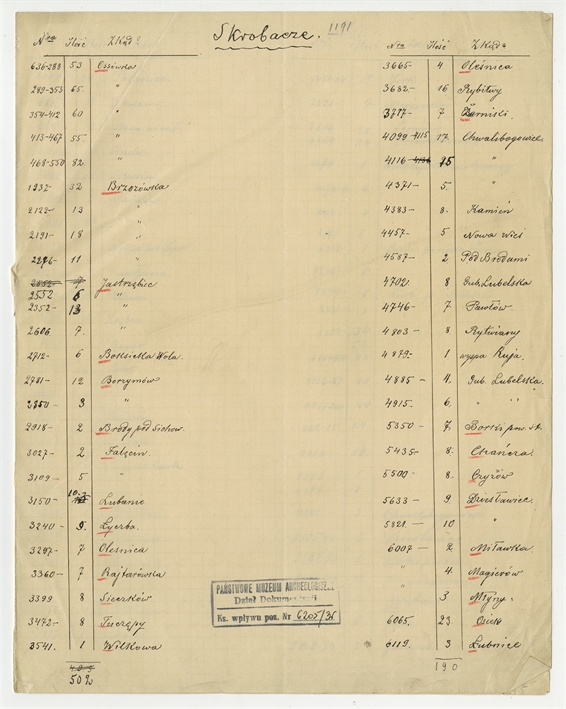 Skrobacze. 1191
Nra Ilość Zkąd?
636-288 53 Ossówka
289-353 65. "
354-412 60 "
413-467 55 "
468-550 82. "
1937- 32 Brzozówka
2122- 13 "
2191- 18 "
2276- 11 "
Jastrząbiec
2552 5 "
2352- 13
2606 7. "
2712- 6 Boksicka Wola.
2781- 12 Borzymów
2850- 3 "
2918- 2 Brody pod Sichow.
3027- 2 Falęcin.
3109- 5 "
3150- 10. Łubanie
3240- 9. Łyczba.
3297- 7 Oleśnica
3360- 7 Rajtarówka
3399 8 Sieczków
3472- 8 Tuczępy
3541. 1 Wilkowa
502
Nra Ilość Zkąd?
3665- 4 Oleśnica
3682- 16 Rybitwy
3717- 7 Żarniski.
4099 4115 17. Chwalibogowice
4116 "
4371- 5. "
4383- 8. Kamień
4457- 5 Nowa Wieś
4587- 2 Pod Brodami
4702. 8 Gub. Lubelska
4746- 7 Pawłów.
4803- 8 Rytwiany
4879- 1 wyspa Ruja.
4885- 4. Gub. Lubelska.
4915. 6. " "
5350- 7. pow. st.
5435- 8. Chańcza.
5500- 8. Czyżów
5633- 9 Dziesławice
5821- 10 "
6007- 2 Miławka.
" 4. Magierów
" 3 Młyny.
6065. 23 Osiek
6119. 3 Łubnice
190
PAŃSTWOWE MUZEUM ARCHEOLOGICZ...
Dział Dokumentacji
Ks. wpływu poz. Nr 6205/35